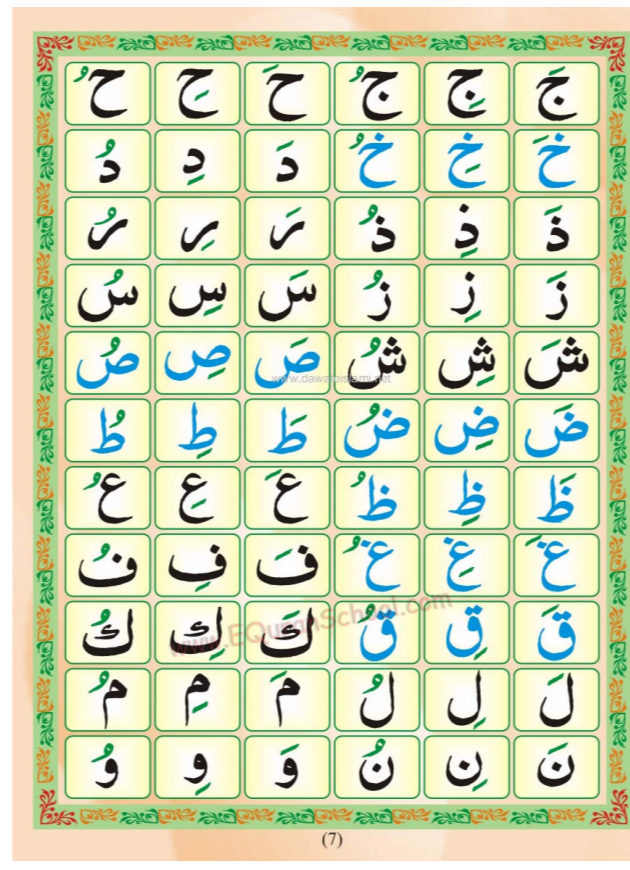 جَ جِ جُ حَ حِ حُ
خَ خِ خُ دَ دِ دُ
ذَ ذِ ذُ رَ رِ رُ
زَ زِ زُ سَ سِ سُ
شَ شِ شُ صَ صِ صُ
www.dawateislami.net
ضَ ضِ ضُ طَ طِ طُ
ظَ ظِ ظُ عَ عِ عُ
غَ غِ غُ فَ فِ فُ
www.EQuranSchool.com
قَ قِ قُ كَ كِ كُ
لَ لِ لُ مَ مِ مُ
نَ نِ نُ وَ وِ وُ
(7)